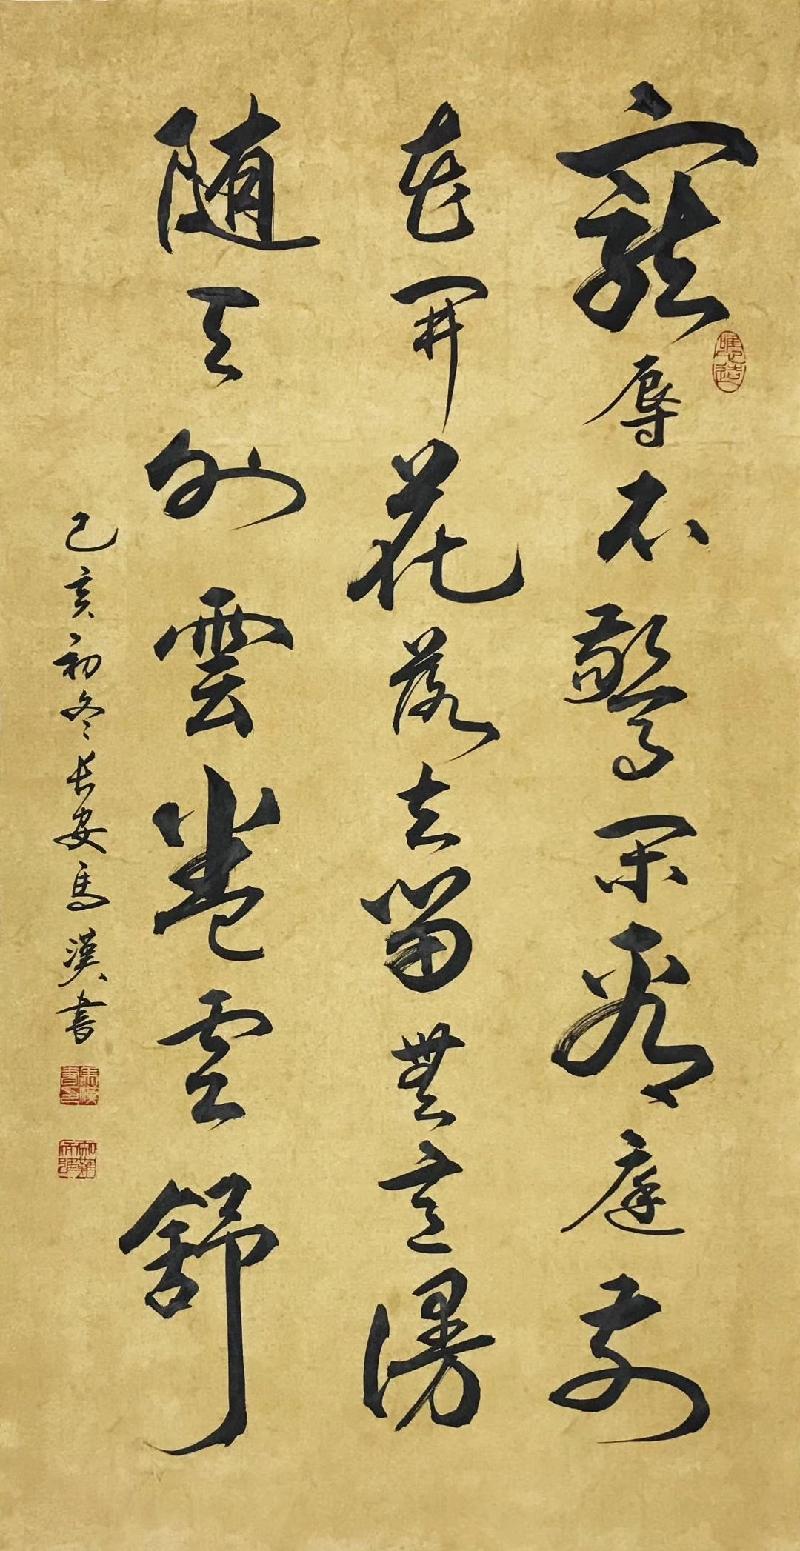 寵辱不驚閑看庭前
花開花落去留無意漫
随天外雲卷雲舒
己亥初冬長安馬漢書